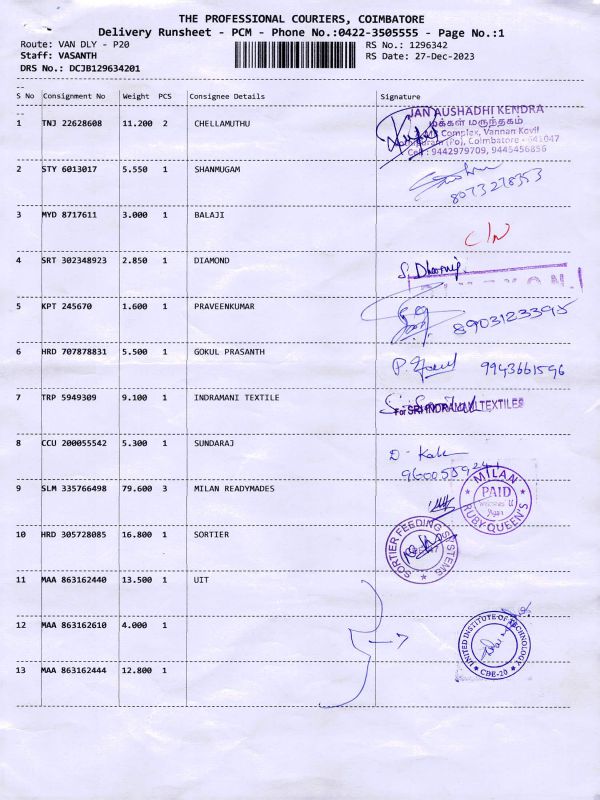 THE PROFESSIONAL COURIERS, COIMBATORE
Delivery Runsheet - PCM - Phone No.:0422-3505555 - Page No.:1
Route: VAN DLY - P20
RS No.: 1296342
Staff: VASANTH
RS Date: 27-Dec-2023
DRS No.: DCJB129634201
S No Consignment No Weight PCS Consignee Details Signature
JAN AUSHADHI KENDRA
மக்கள் மருந்தகம்
1 TNJ 22628608 11.200 2 CHELLAMUTHU
Complex, Vannan Kovil
(Po), Coimbatore - 641047
Cell : 9442979709, 9445456856
2 STY 6013017 5.550 1 SHANMUGAM
8073278353
3 MYD 8717611 3.000 1 BALAJI
C/N
4 SRT 302348923 2.850 1 DIAMOND
5 KPT 245670 1.600 1 PRAVEENKUMAR
8903123395
6 HRD 707878831 5.500 1 GOKUL PRASANTH
9943661596
7 TRP 5949309 9.100 1 INDRAMANI TEXTILE
For SRI INDRAMANI TEXTILES
8 CCU 200055542 5.300 1 SUNDARAJ
9 SLM 335766498 79.600 3 MILAN READYMADES
MILAN
PAID
RUBY QUEEN'S
10 HRD 305728085 16.800 1 SORTIER
SORTIER FEEDING SYSTEMS
11 MAA 863162440 13.500 1 UIT
12 MAA 863162610 4.000 1
UNITED INSTITUTE OF TECHNOLOGY
CBE-20
13 MAA 863162444 12.800 1